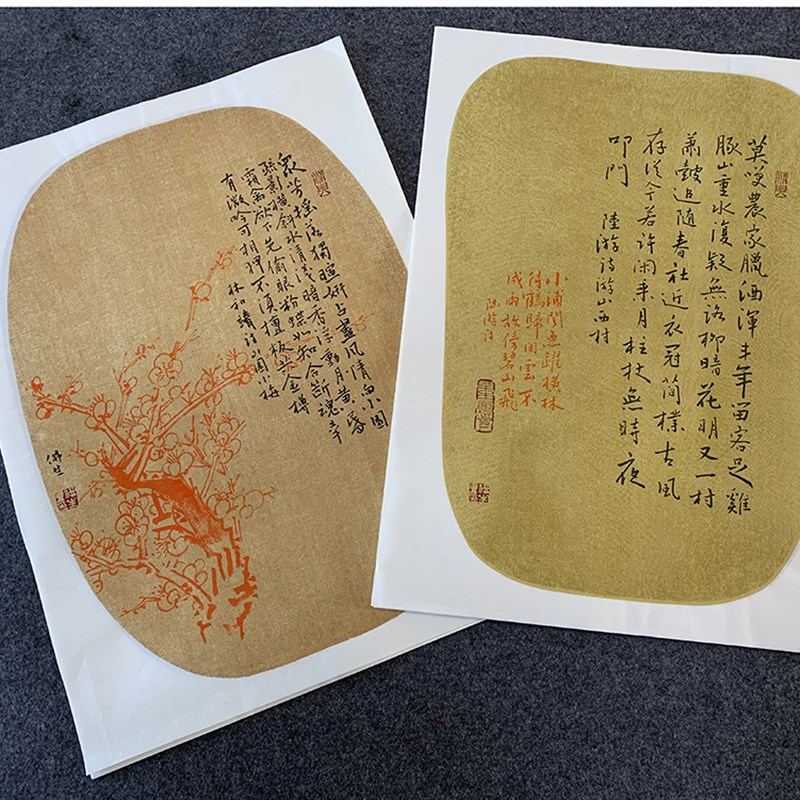 衆芳搖落獨暄妍占盡風情向小園
疏影橫斜水清淺暗香浮動月黃昏
霜禽欲下先偷眼粉蝶如知合斷魂幸
有微吟可相狎不須檀板共金樽
林和靖詩山園小梅
佛生
莫笑農家臘酒渾丰年留客足雞
豚山重水復疑無路柳暗花明又一村
蕭鼓追隨春社近衣冠簡樸古風
存從今若許闲乘月柱杖無時夜
叩門 陸游詩游山西村
小浦聞魚躍橫林
待鶴歸闲雲不
成雨故傍碧山飛
陸游詩